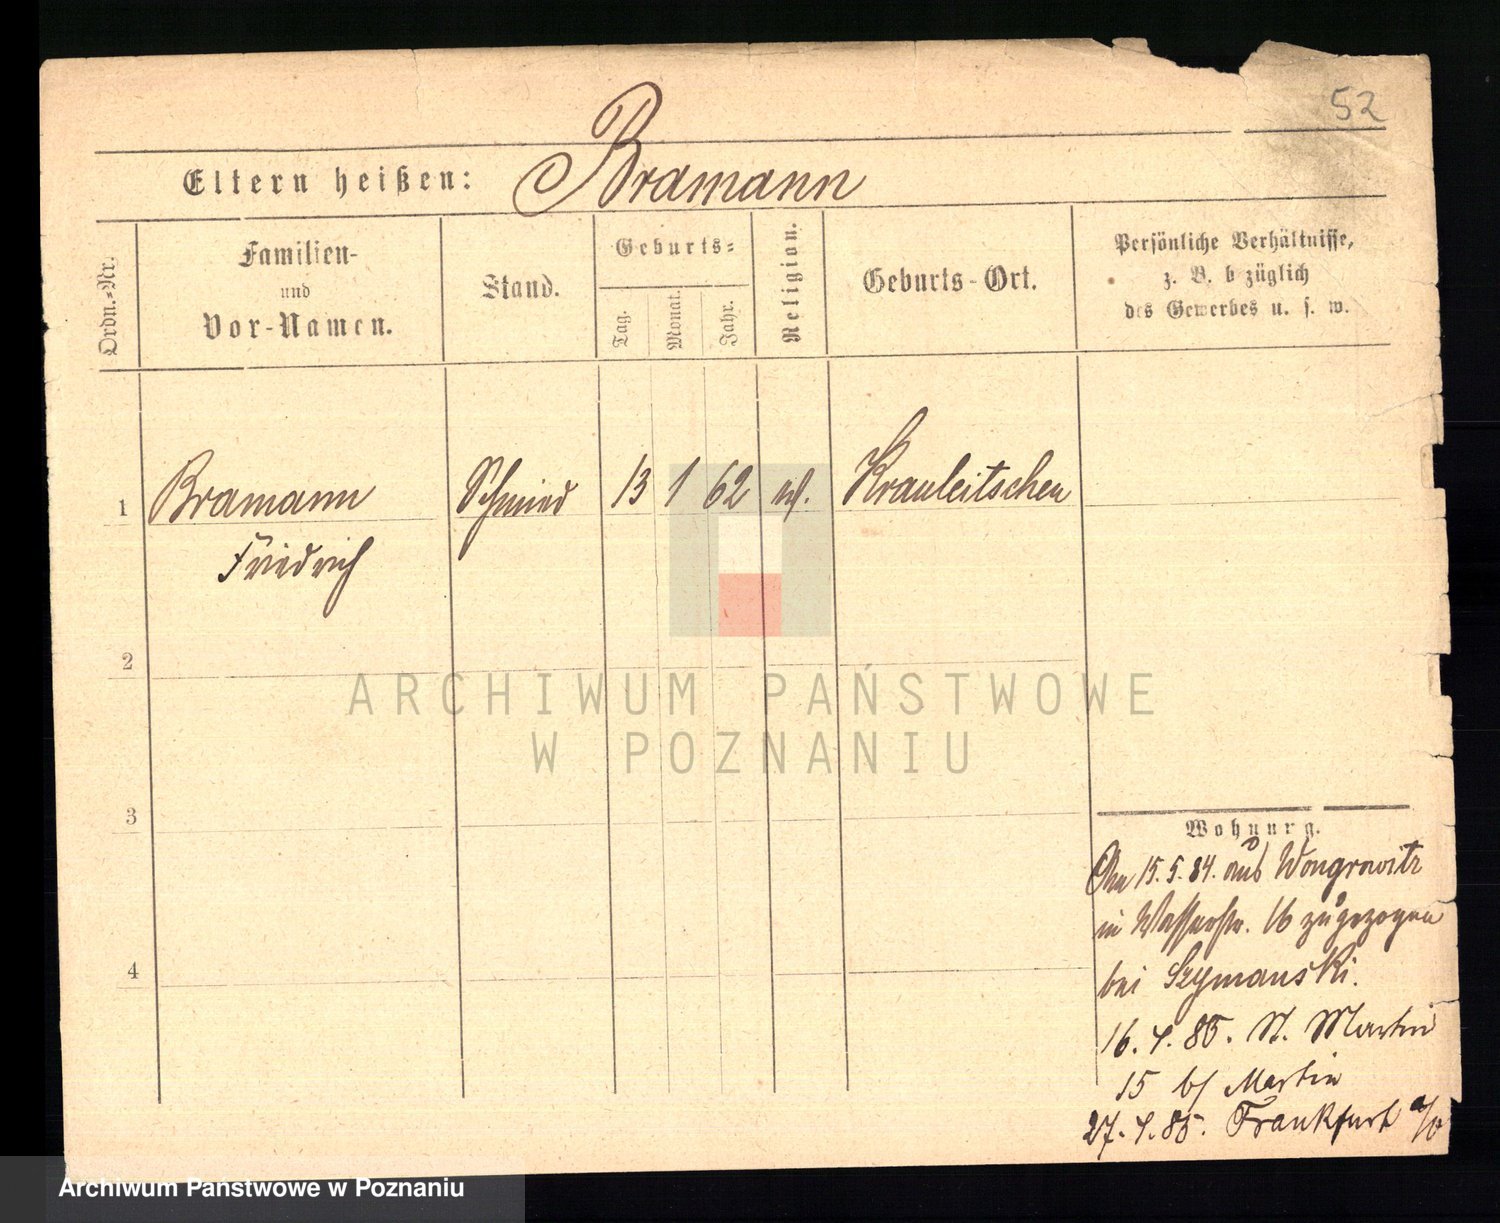 52
Eltern heißen: Bramann
Ordn.-Nr.
Familien-
und
Vor-Namen.
Stand.
Geburts-
Tag.
Monat.
Jahr.
Religion.
Geburts-Ort.
Persönliche Verhältnisse,
z. B. bezüglich
des Gewerbes u. s. w.
1 Bramann Schmied 13 1 62 Krauleitschen
Friedrich
2
3
4
Wohnung.
Am 15.5.84. aus Wongrowitz
in Wasserstr. 16 zugezogen
bei Szymanski.
16.4.85. St. Martin
15 b/ Martin
27.4.85. Frankfurt a/o
ARCHIWUM PAŃSTWOWE
W POZNANIU
Archiwum Państwowe w Poznaniu